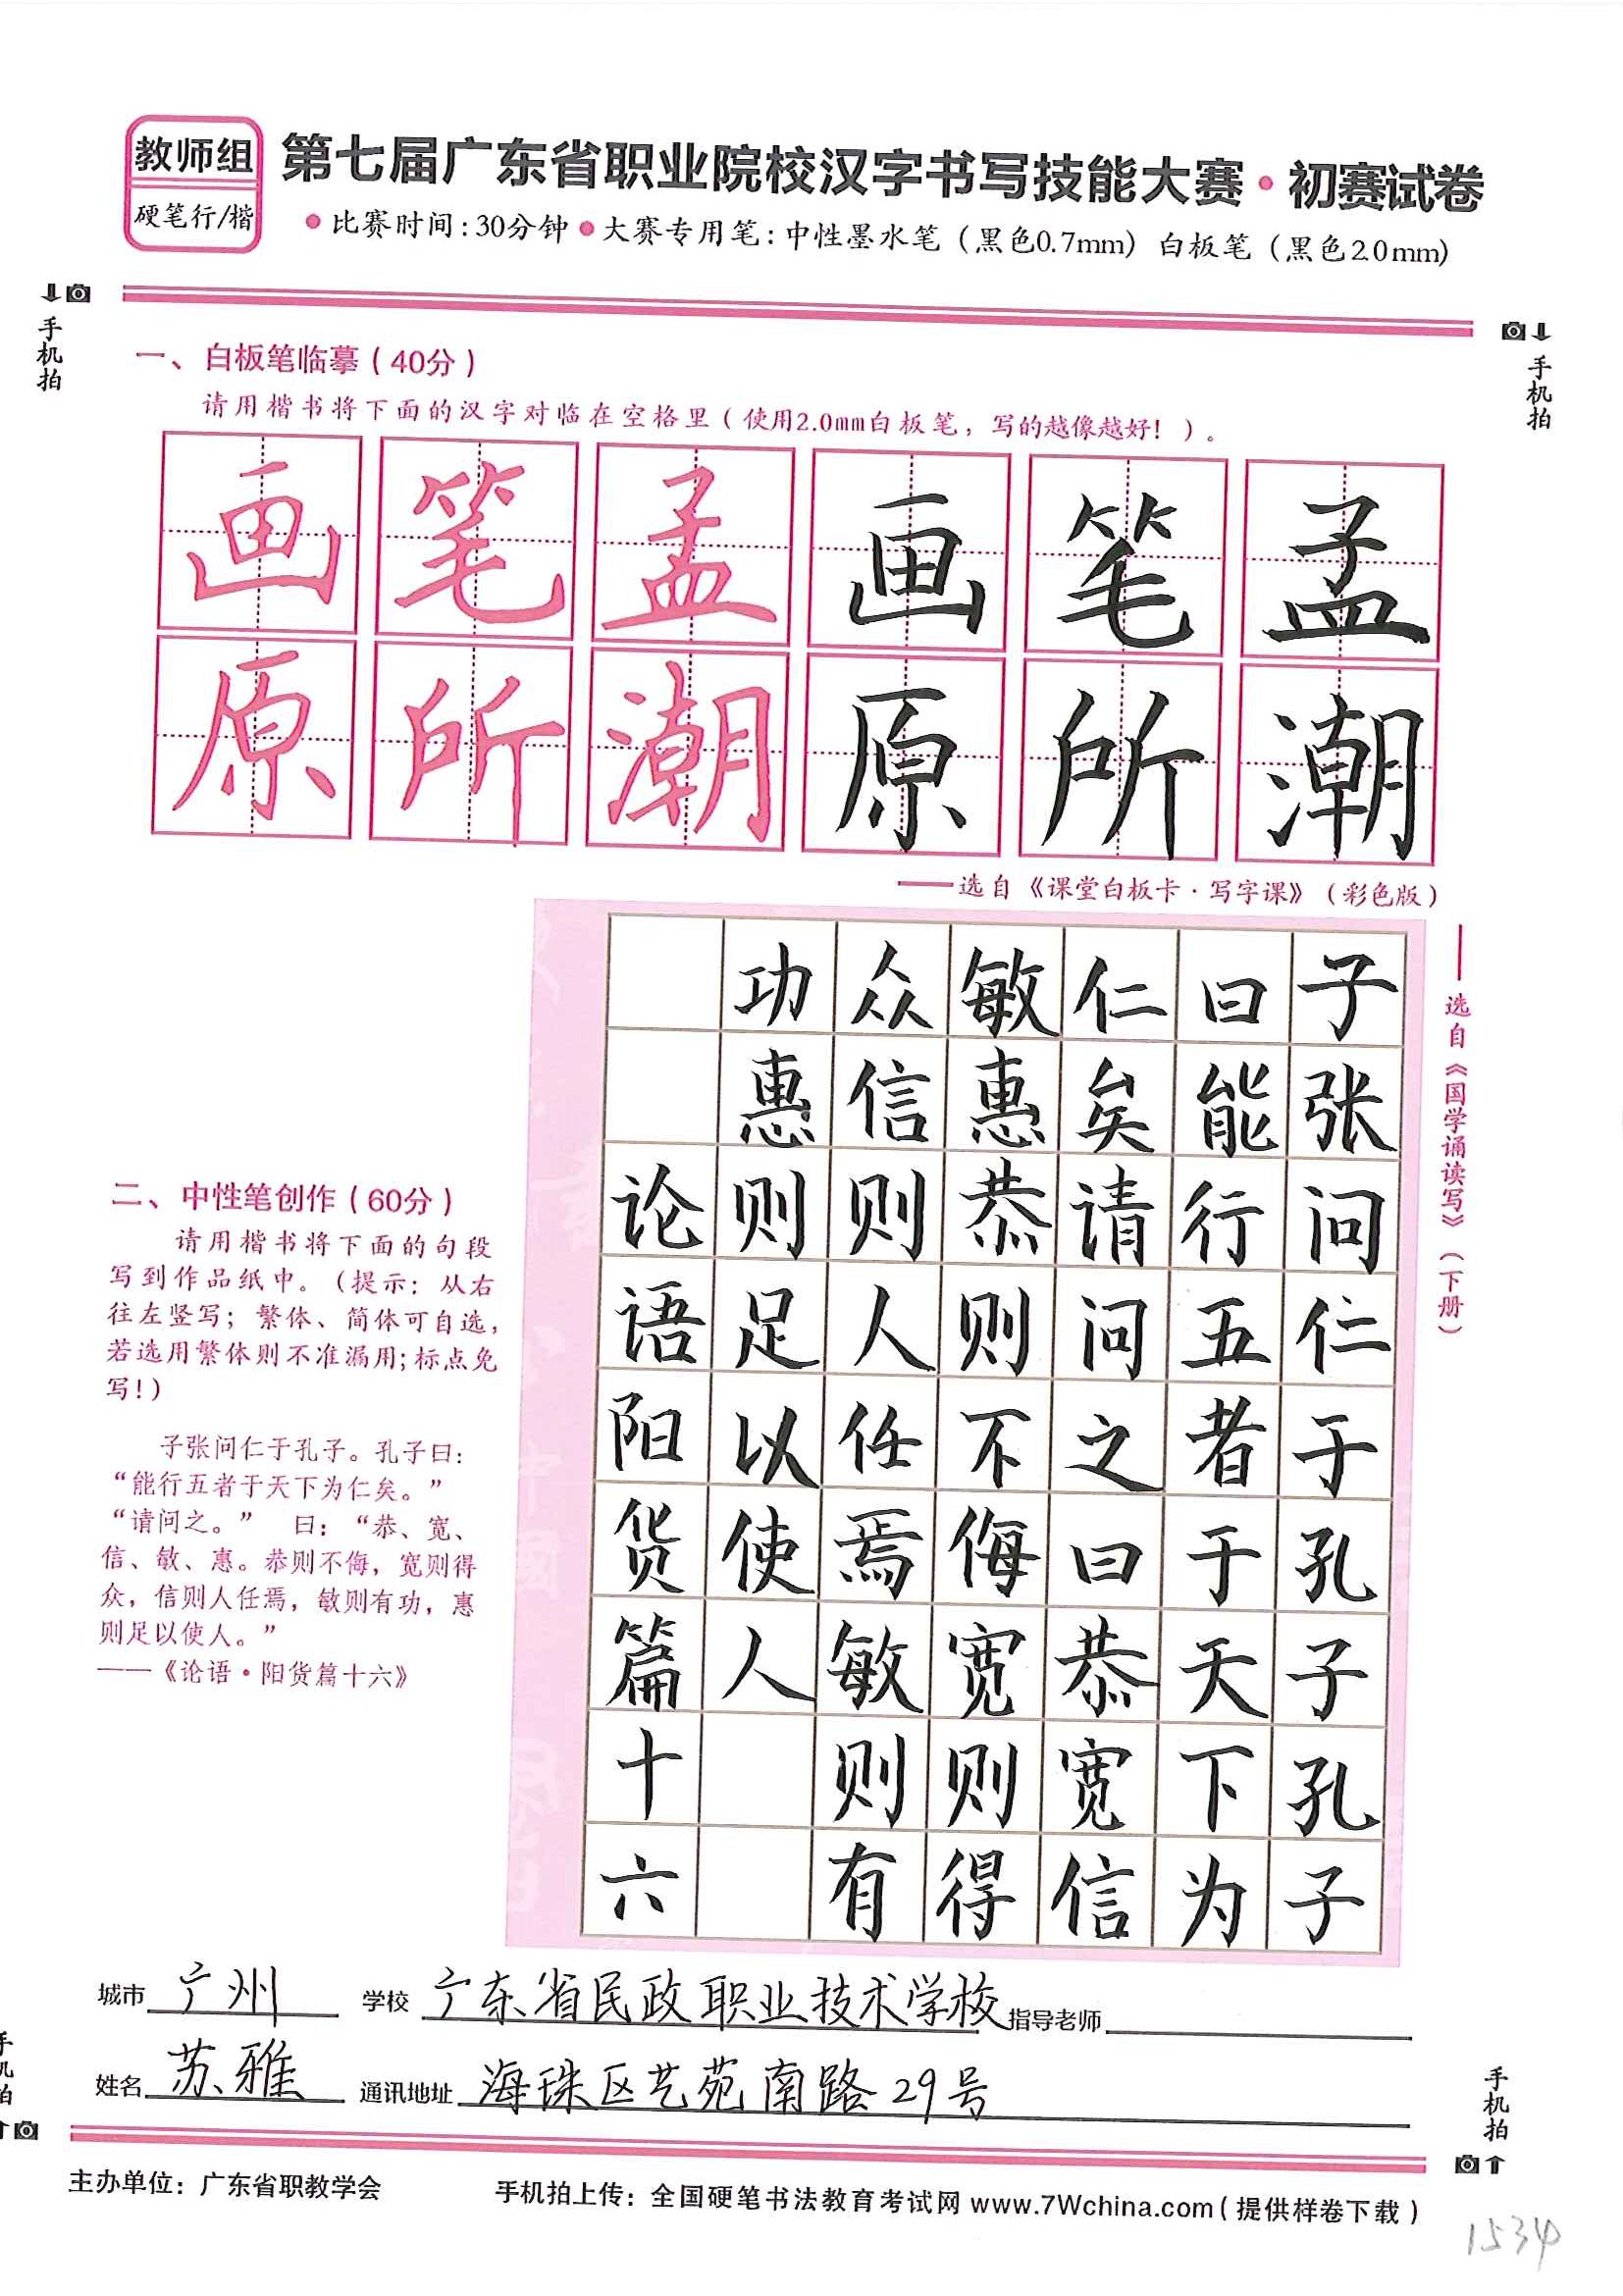 教师组
硬笔行/楷
第七届广东省职业院校汉字书写技能大赛·初赛试卷
●比赛时间:30分钟●大赛专用笔:中性墨水笔（黑色0.7mm）白板笔（黑色2.0mm）
手机拍
手机拍
一、白板笔临摹（40分）
请用楷书将下面的汉字对临在空格里（使用2.0mm白板笔，写的越像越好！）。
画笔孟画笔孟
原所潮原所潮
——选自《课堂白板卡·写字课》（彩色版）
——选自《国学诵读写》（下册）
子张问仁于孔子孔子
曰能行五者于天下为
仁矣请问之曰恭宽信
敏惠恭则不侮宽则得
众信则人任焉敏则有
功惠则足以使人
论语阳货篇十六
二、中性笔创作（60分）
请用楷书将下面的句段
写到作品纸中。（提示：从右
往左竖写；繁体、简体可自选，
若选用繁体则不准漏用;标点免
写!）
子张问仁于孔子。孔子曰：
“能行五者于天下为仁矣。”
“请问之。” 曰：“恭、宽、
信、敏、惠。恭则不侮，宽则得
众，信则人任焉，敏则有功，惠
则足以使人。”
——《论语·阳货篇十六》
城市 广州 学校 广东省民政职业技术学校 指导老师
姓名 苏雅 通讯地址 海珠区艺苑南路29号
手机拍
手机拍
主办单位：广东省职教学会 手机拍上传：全国硬笔书法教育考试网 www.7Wchina.com（提供样卷下载）
1534